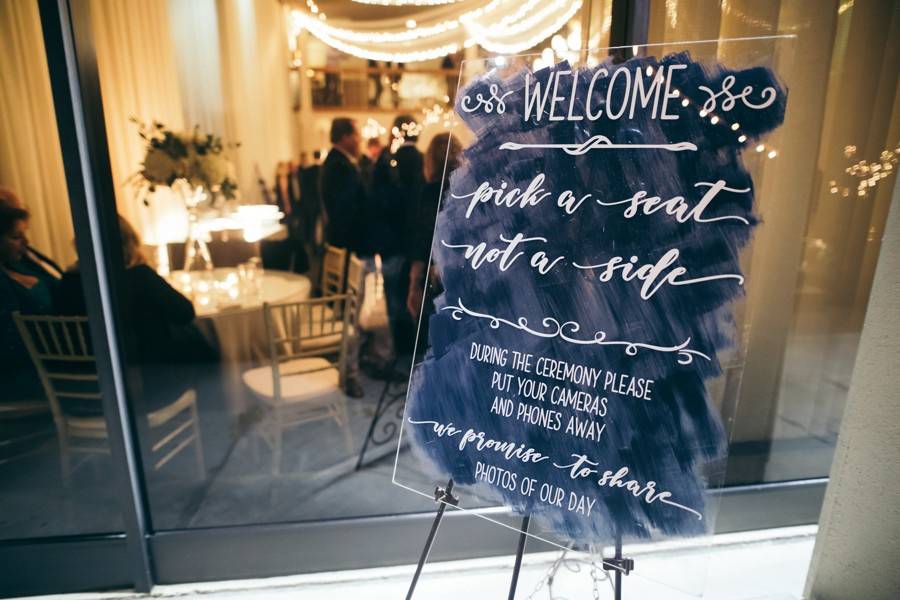 WELCOME
pick a seat
not a side
DURING THE CEREMONY PLEASE
PUT YOUR CAMERAS
AND PHONES AWAY
we promise to share
PHOTOS OF OUR DAY